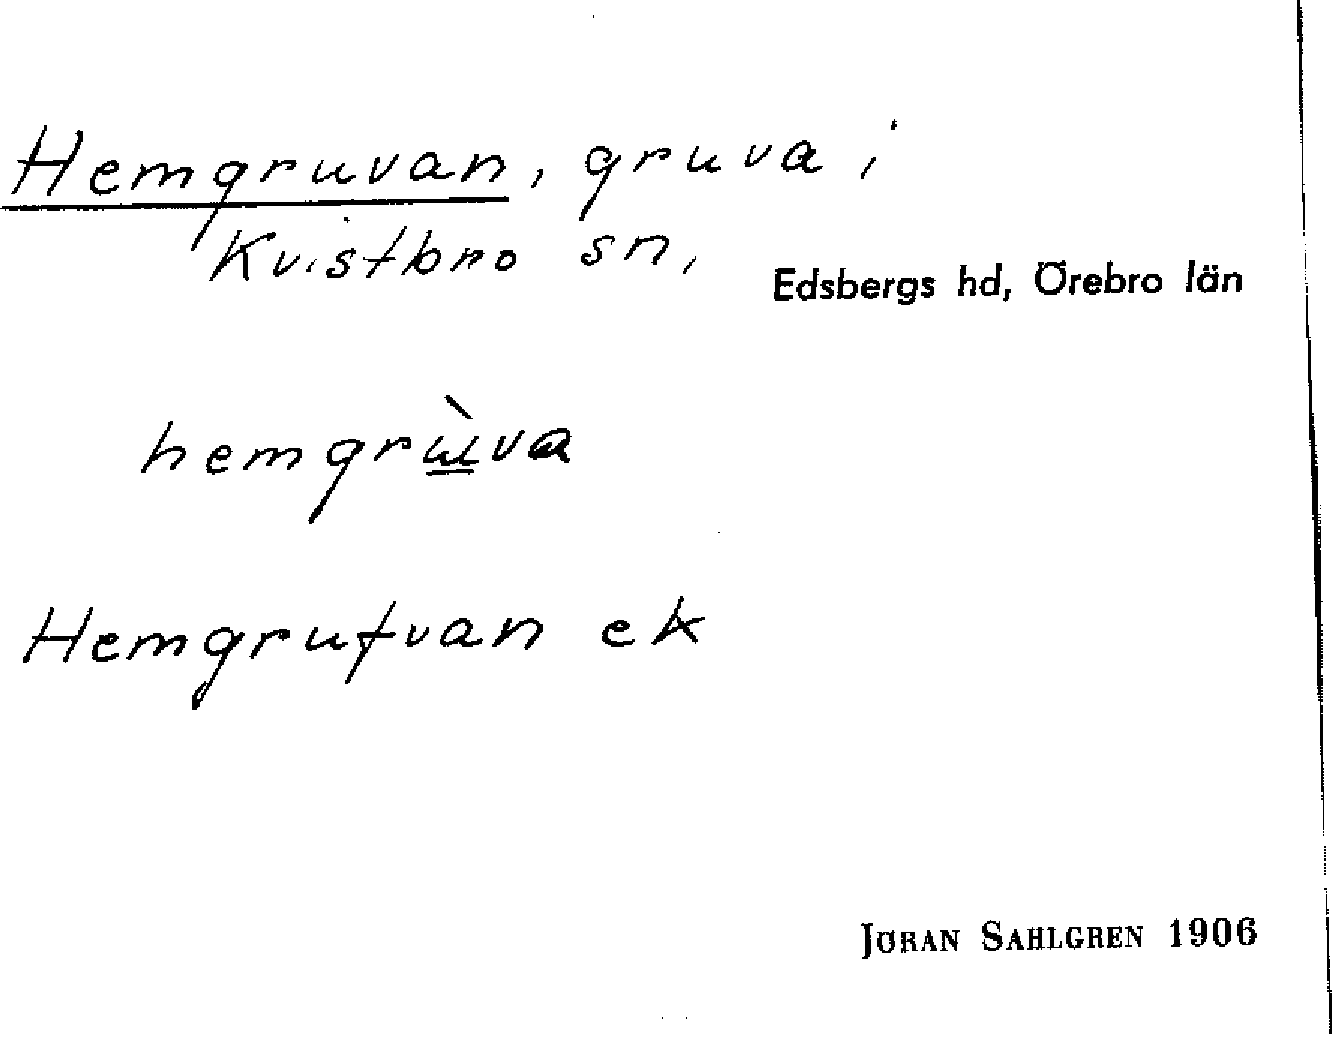 Hemgruvan, gruva i
Kvistbro sn,
Edsbergs hd, Örebro län
hemgrùva
Hemgrufvan ek
JÖRAN SAHLGREN 1906